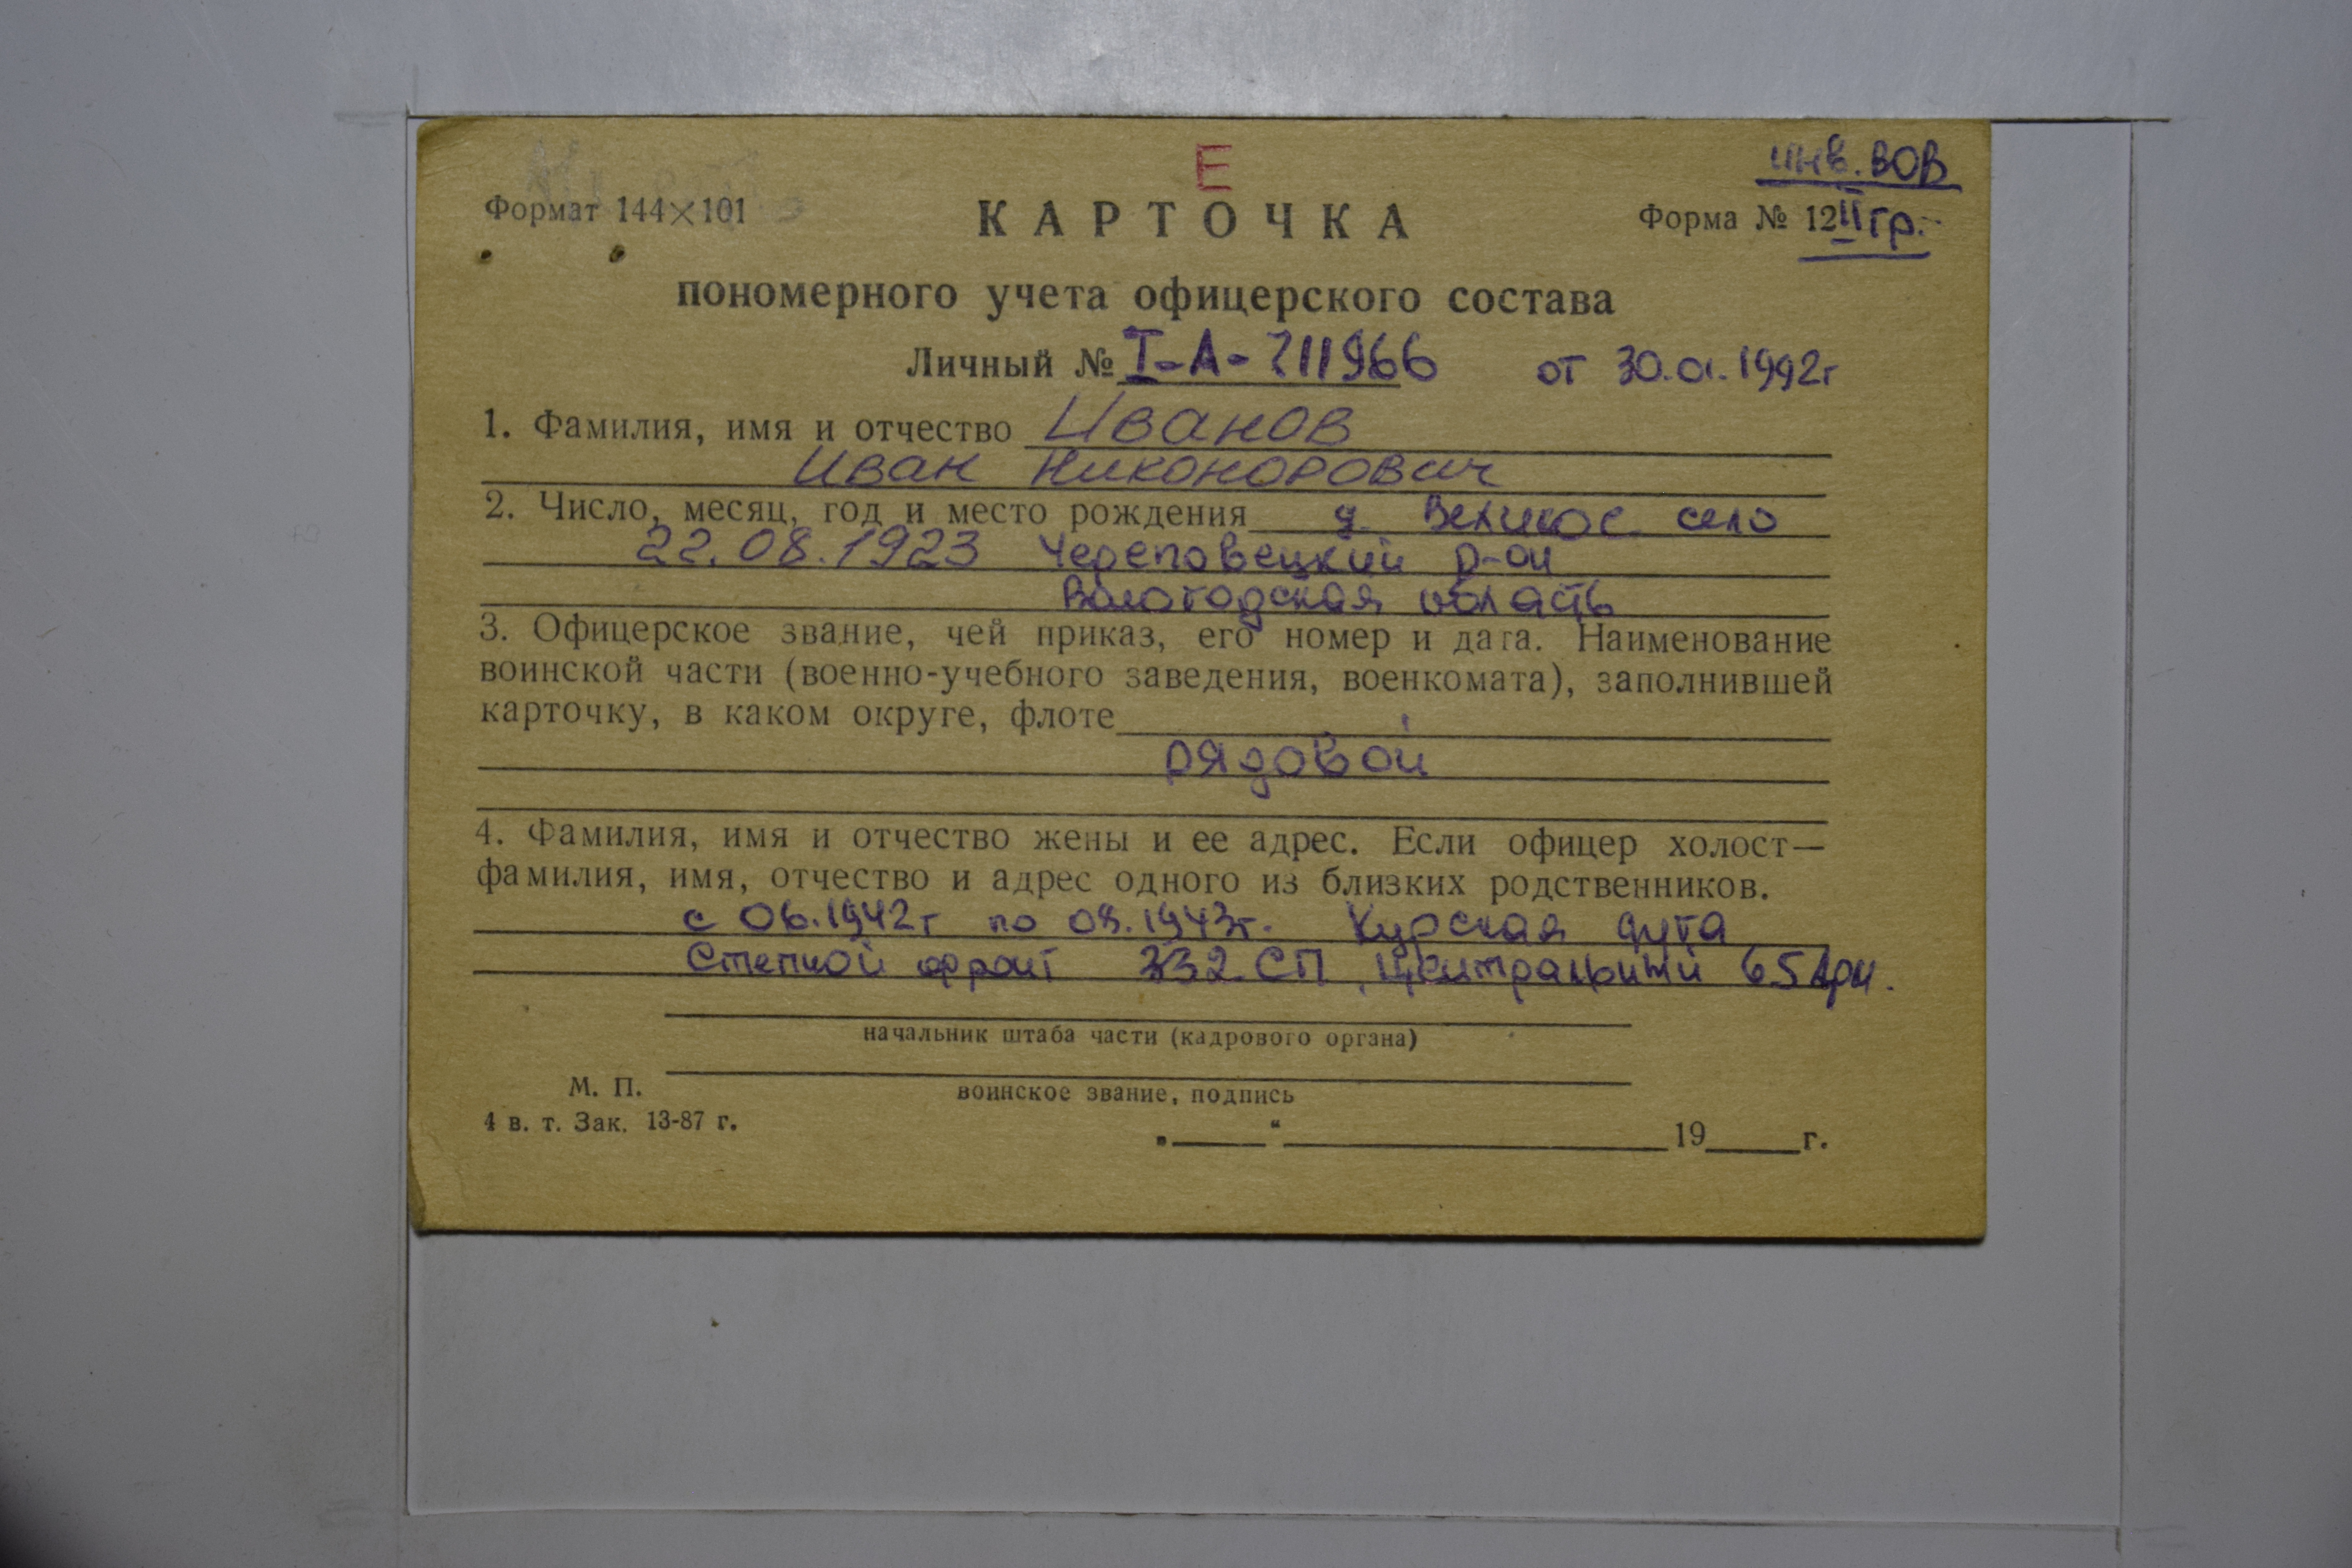 Е
инв. ВОВ
Формат 144×101
КАРТОЧКА
Форма № 12 II гр.
пономерного учета офицерского состава
Личный № I-А-711966 от 30.01.1992г
1. Фамилия, имя и отчество Иванов
Иван Никонорович
2. Число, месяц, год и место рождения д. Великое село
22.08.1923 Череповецкий р-он
Вологодская область
3. Офицерское звание, чей приказ, его номер и дата. Наименование
воинской части (военно-учебного заведения, военкомата), заполнившей
карточку, в каком округе, флоте
рядовой
4. Фамилия, имя и отчество жены и ее адрес. Если офицер холост—
фамилия, имя, отчество и адрес одного из близких родственников.
с 06.1942г по 08.1943г. Курская дуга
Степной фронт 332 СП, Центральный 65
начальник штаба части (кадрового органа)
М. П.
воинское звание, подпись
4 в. т. Зак. 13-87 г.
„ “ 19 г.